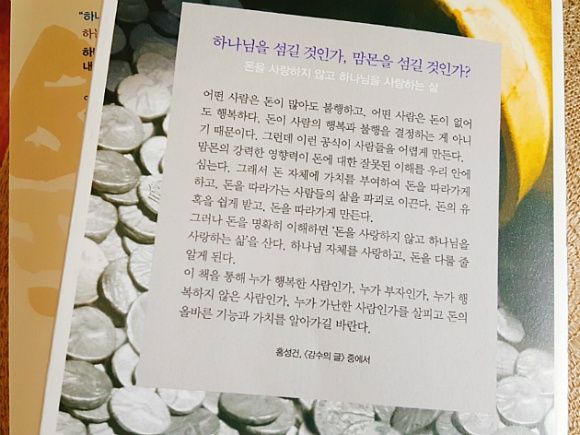 하나님을 섬길 것인가, 맘몬을 섬길 것인가?
돈을 사랑하지 않고 하나님을 사랑하는 삶
어떤 사람은 돈이 많아도 불행하고, 어떤 사람은 돈이 없어
도 행복하다. 돈이 사람의 행복과 불행을 결정하는 게 아니
기 때문이다. 그런데 이런 공식이 사람들을 어렵게 만든다.
맘몬의 강력한 영향력이 돈에 대한 잘못된 이해를 우리 안에
심는다. 그래서 돈 자체에 가치를 부여하여 돈을 따라가게
하고, 돈을 따라가는 사람들의 삶을 파괴로 이끈다. 돈의 유
혹을 쉽게 받고, 돈을 따라가게 만든다.
그러나 돈을 명확히 이해하면 '돈을 사랑하지 않고 하나님을
사랑하는 삶'을 산다. 하나님 자체를 사랑하고, 돈을 다룰 줄
알게 된다.
이 책을 통해 누가 행복한 사람인가, 누가 부자인가, 누가 행
복하지 않은 사람인가, 누가 가난한 사람인가를 살피고 돈의
올바른 기능과 가치를 알아가길 바란다.
홍성건, 〈감수의 글〉 중에서
"하나
하는
하
내